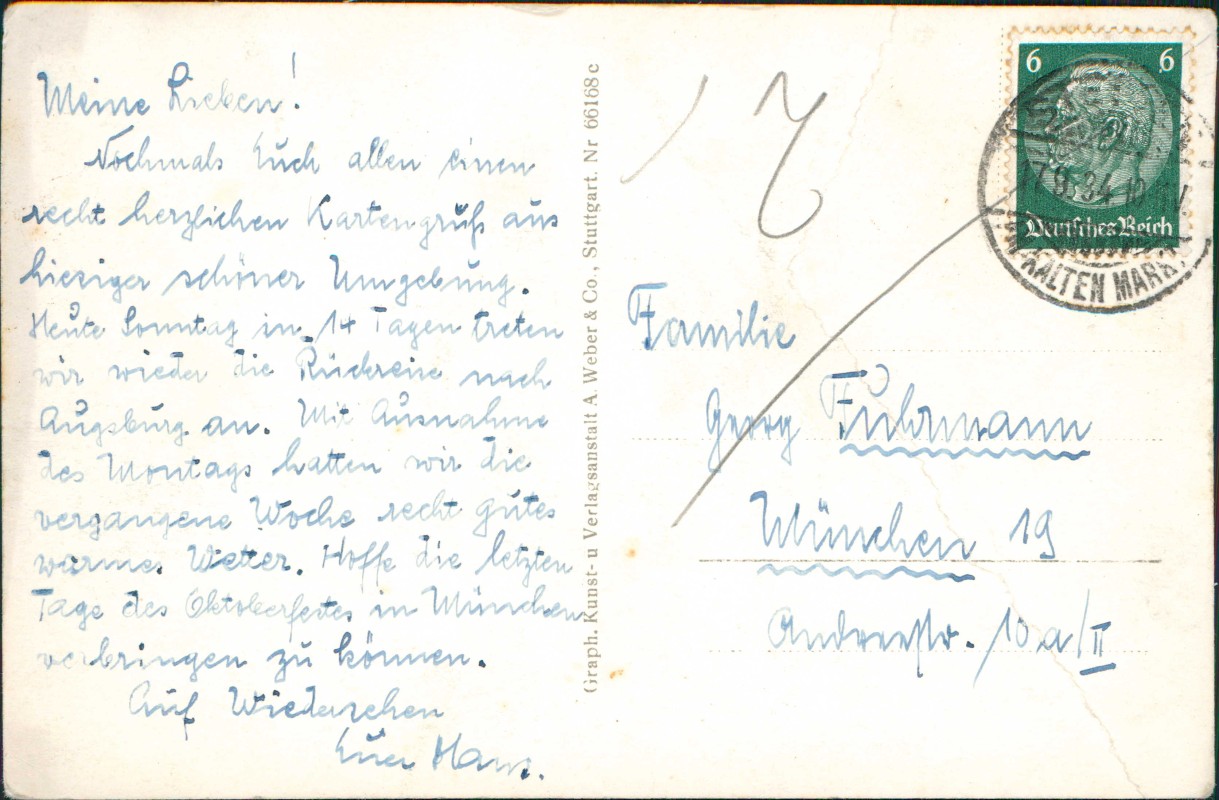 Meine Lieben!
Nochmals Euch allen einen
recht herzlichen Kartengruß aus
hiesiger schöner Umgebung.
Heute Sonntag in 14 Tagen treten
wir wieder die Rückreise nach
Augsburg an. Mit Ausnahme
des Montags hatten wir die
vergangene Woche recht gutes
warmes Wetter. Hoffe die letzten
Tage des Oktoberfestes in München
verbringen zu können.
Auf Wiedersehen
Euer Hans.
Graph. Kunst- u Verlagsanstalt A. Weber & Co., Stuttgart. Nr 66168c
6 6
Deutsches Reich
9.34.10
KALTEN MARKT
Familie
Georg Fuhrmann
München 19
Andreestr. 10a/II